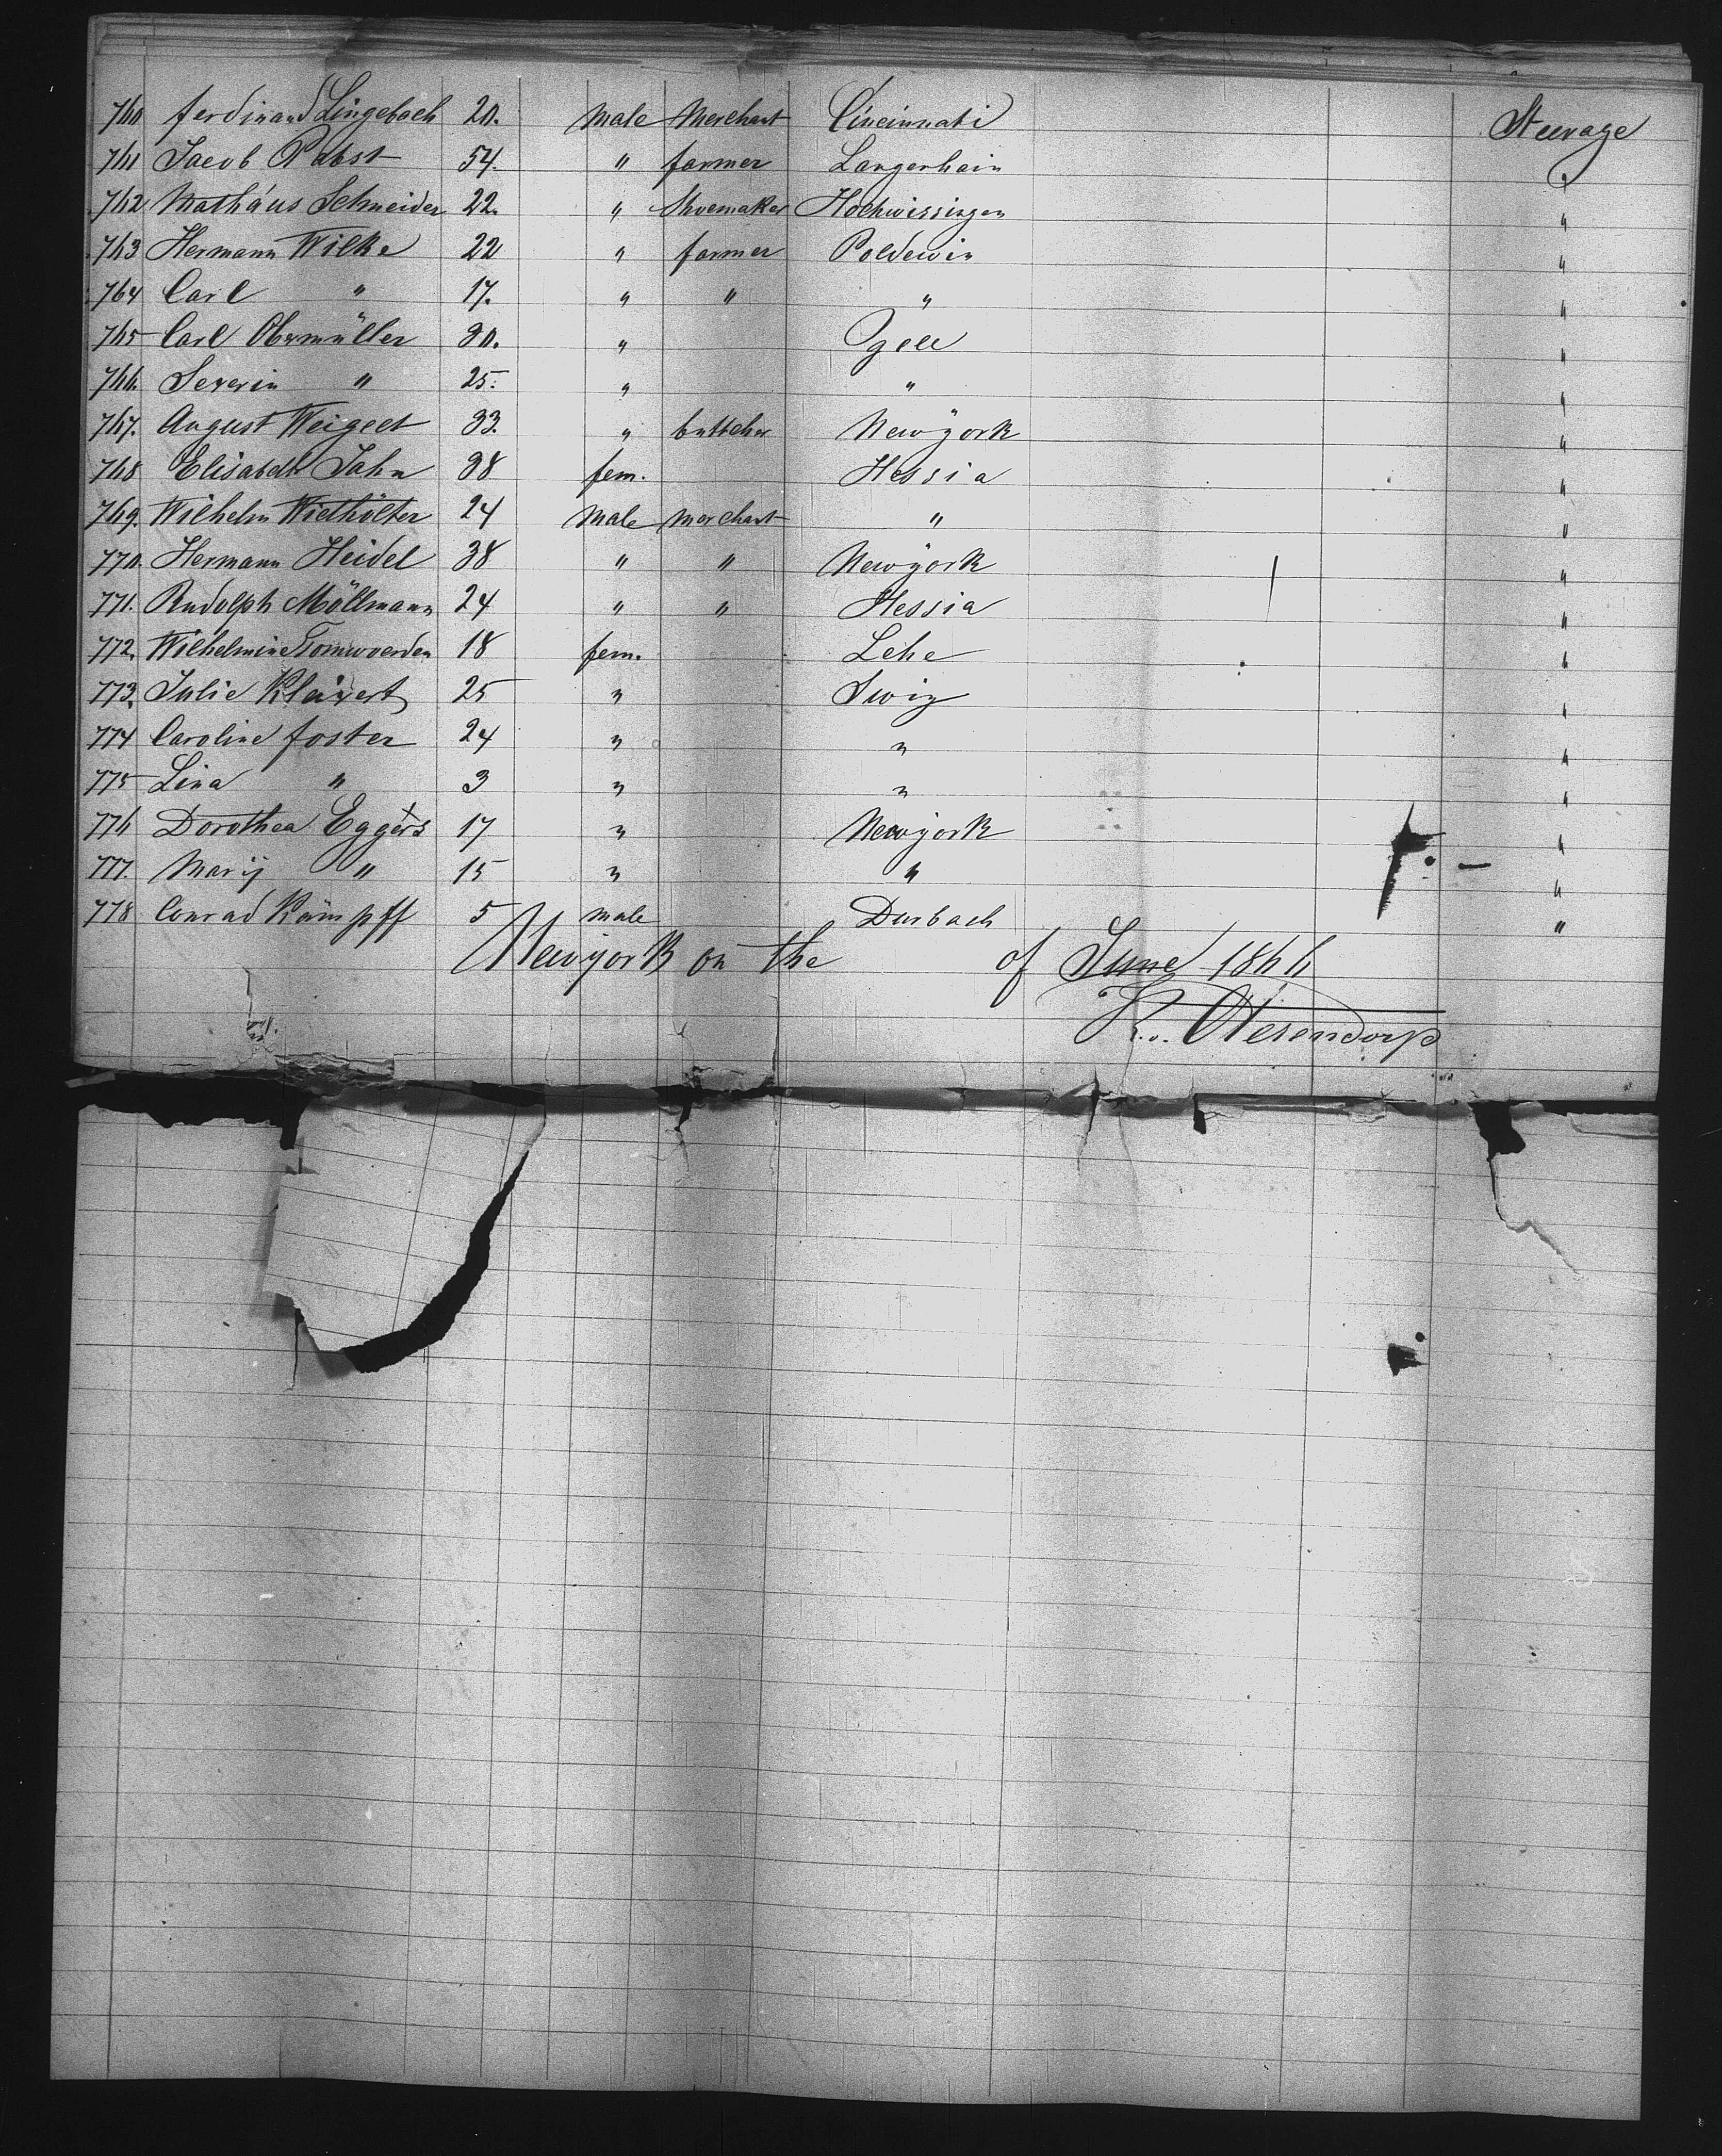 760 ferdinand Lingebach 20. Male Merchant Cincinnati Steerage
761 Jacob Pabst 54. " farmer Langerhain "
762 Mathäus Schneider 22. " Shoemaker Hochwissingen "
763 Hermann Wilke 22 " farmer Poldewin "
764 Carl " 17. " " " "
765 Carl Obermüller 30. " "
766. Severin " 25. " " "
767. August Weigelt 33. " buttcher Newyork "
768 Elisabeth Jahn 38 fem. Hessia "
769. Wilhelm Wiethölter 24 Male merchant " "
770. Hermann Heidel 38 " " Newyork "
771. Rudolph Möllmann 24 " " Hessia "
772. Wilhelmine 18 fem. Lehe "
773. Julie 25 " Swiz "
774 Caroline foster 24 " " "
775 Lina " 3 " " "
776 Dorothea Eggers 17 " Newyork "
777. Marÿ " 15 " " "
778 Conrad Kämpff 5 male Durbach "
Newyork on the of June 1866